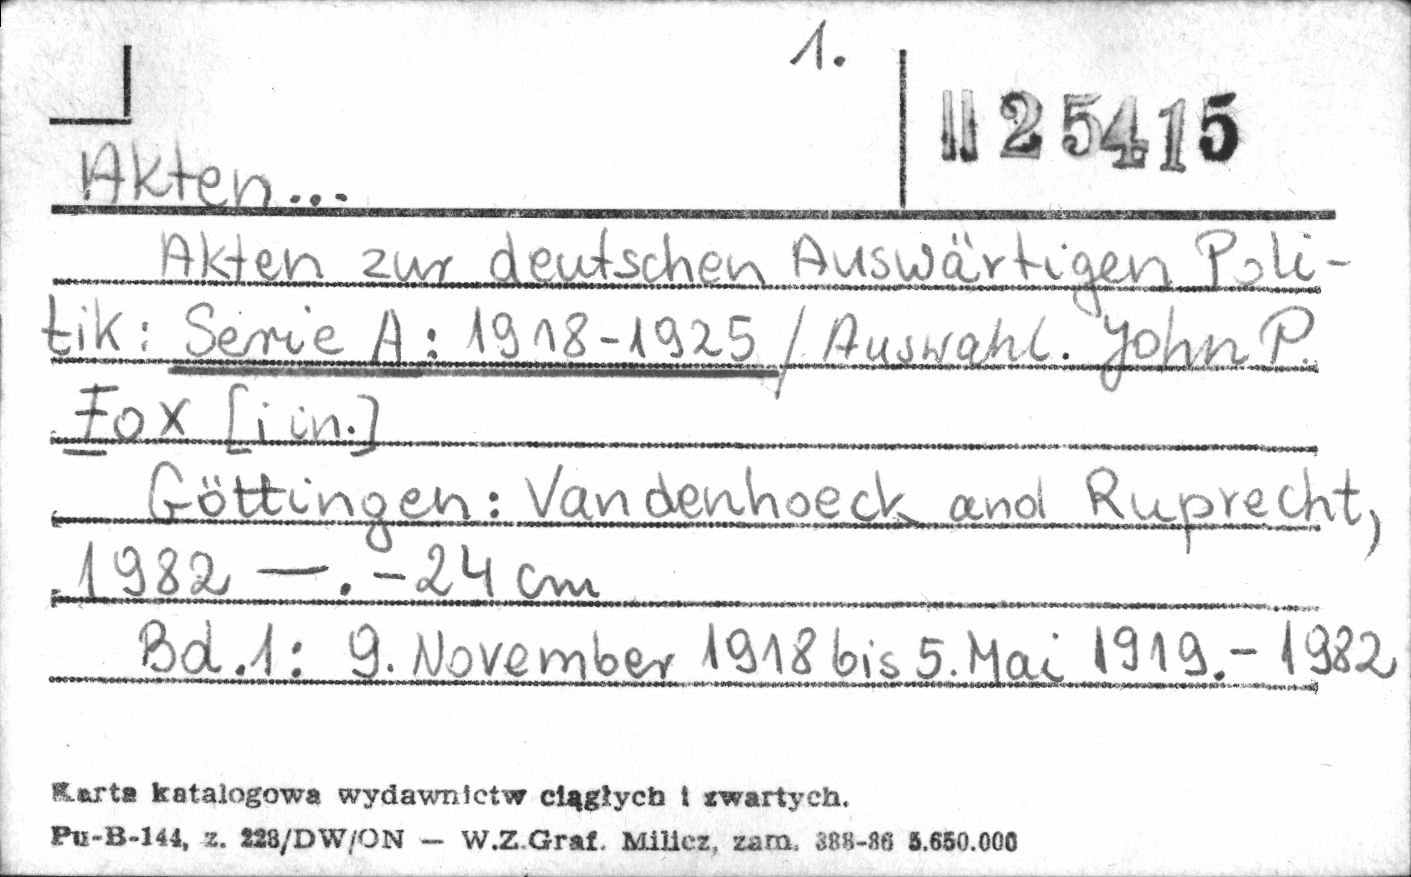 1.
II 25415
Akten...
Akten zur deutschen Auswärtigen Poli-
tik: Serie A: 1918-1925 / Auswahl. John P.
Fox [i in.]
Göttingen: Vandenhoeck and Ruprecht,
1982 —. - 24 cm
Bd.1: 9. November 1918 bis 5. Mai 1919. - 1982
Karta katalogowa wydawnictw ciągłych i zwartych.
Pu-B-144, z. 228/DW/ON — W.Z.Graf. Milicz, zam. 388-86 5.650.000